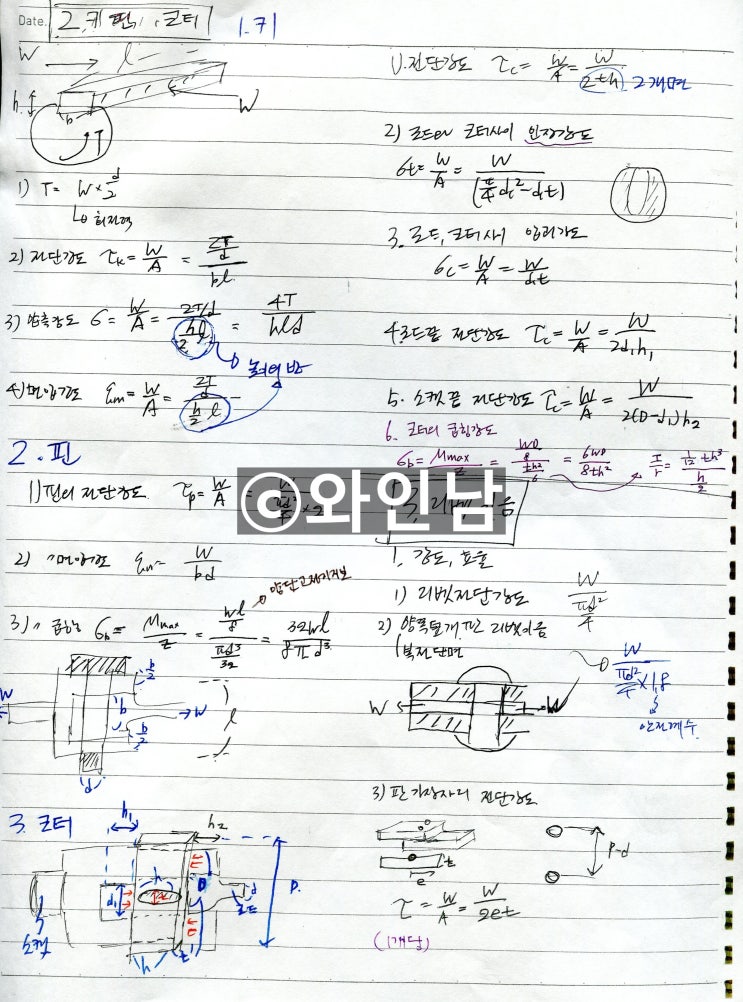 Date.
2. 키 핀, 코터
1. 키
W
l
h
b
W
T
1) T = W × d/2
↳ 회전력
2) 전단강도 τk = W/A = (2T/d)/bl
3) 압축강도 σ = W/A = (2T/d)/(hl/2) = 4T/hld
4) 면압강도 qm = W/A = (2T/d)/(h/2 l)
2. 핀
1) 핀의 전단강도 τp = W/A = W/(πd²/4 × 2)
2) 〃 면압강도 qm = W/bd
3) 〃 굽힘강도 σb = Mmax/Z = (Wl/8)/(πd³/32) = 32Wl/8πd³
양단고정지지보
b/2
W
b
W
l
b/2
d
3. 코터
h1
h2
h
d1
D
d
로드
D
소켓
h
t
1). 전단강도 τc = W/A = W/2th
2개면
2) 로드와 코터사이 인장강도
σt = W/A = W/(π/4 d1² - d1t)
3. 로드, 코터사이 압괴강도
σc = W/A = W/d1t
4 로드끝 전단강도 τc = W/A = W/2d1h1
5. 소켓 끝 전단강도 τc = W/A = W/2(D-d1)h2
6. 코터의 굽힘강도
σb = Mmax/Z = (WD/8)/(th²/6) = 6WD/8th² I/r = (1/12 th³)/(h/2)
@와인남
3. 리벳이음
1. 강도, 효율
1) 리벳전단강도 W/(πd²/4)
2) 양쪽덮개판 리벳이음
복전단면
W/(πd²/4 × 1.8)
안전계수
W
W
3) 판 가장자리 전단강도
t
e
p-d
τ = W/A = W/2et
(1개당)